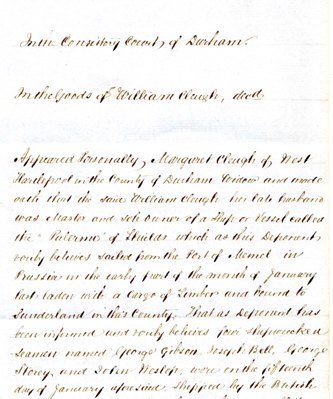 In the Consistory Court of Durham.
In the Goods of William Clough, decd
Appeared Personally, Margaret Clough of West
Hartlepool in the County of Durham Widow and made
oath that the said William Clough her late husband
was Master and sole owner of a Ship or Vessel called
the "Palermo" of Shields which as this Deponent
verily believes sailed from the Port of Memel in
Prussia in the early part of the month of January
last laden with a Cargo of Timber and bound to
Sunderland in this County. That as Deponent has
been informed and verily believes four shipwrecked
Seamen named George Gibson, Joseph Bell, George
Storey, and John Weslop, were on the fifteenth
day of January aforesaid, shipped by the British